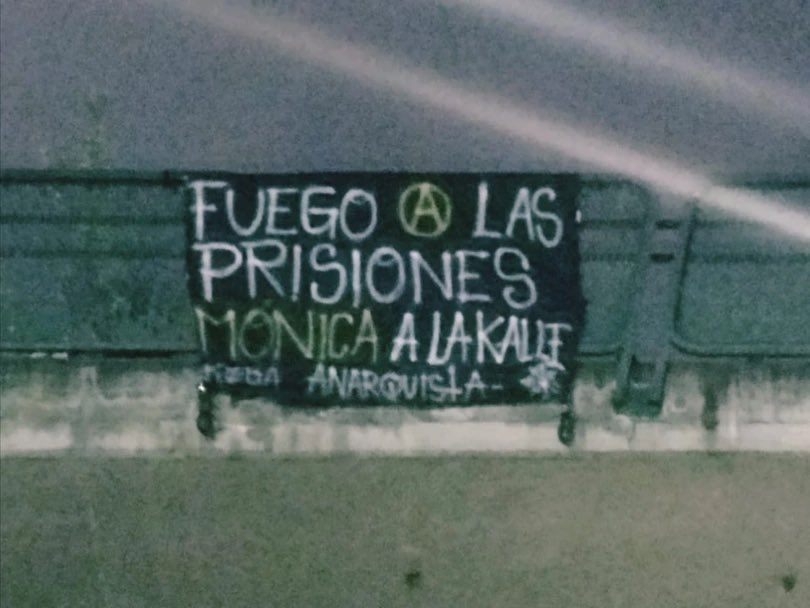 FUEGO Ⓐ LAS
PRISIONES
MÓNICA A LA KALLE
ANARQUISTA-